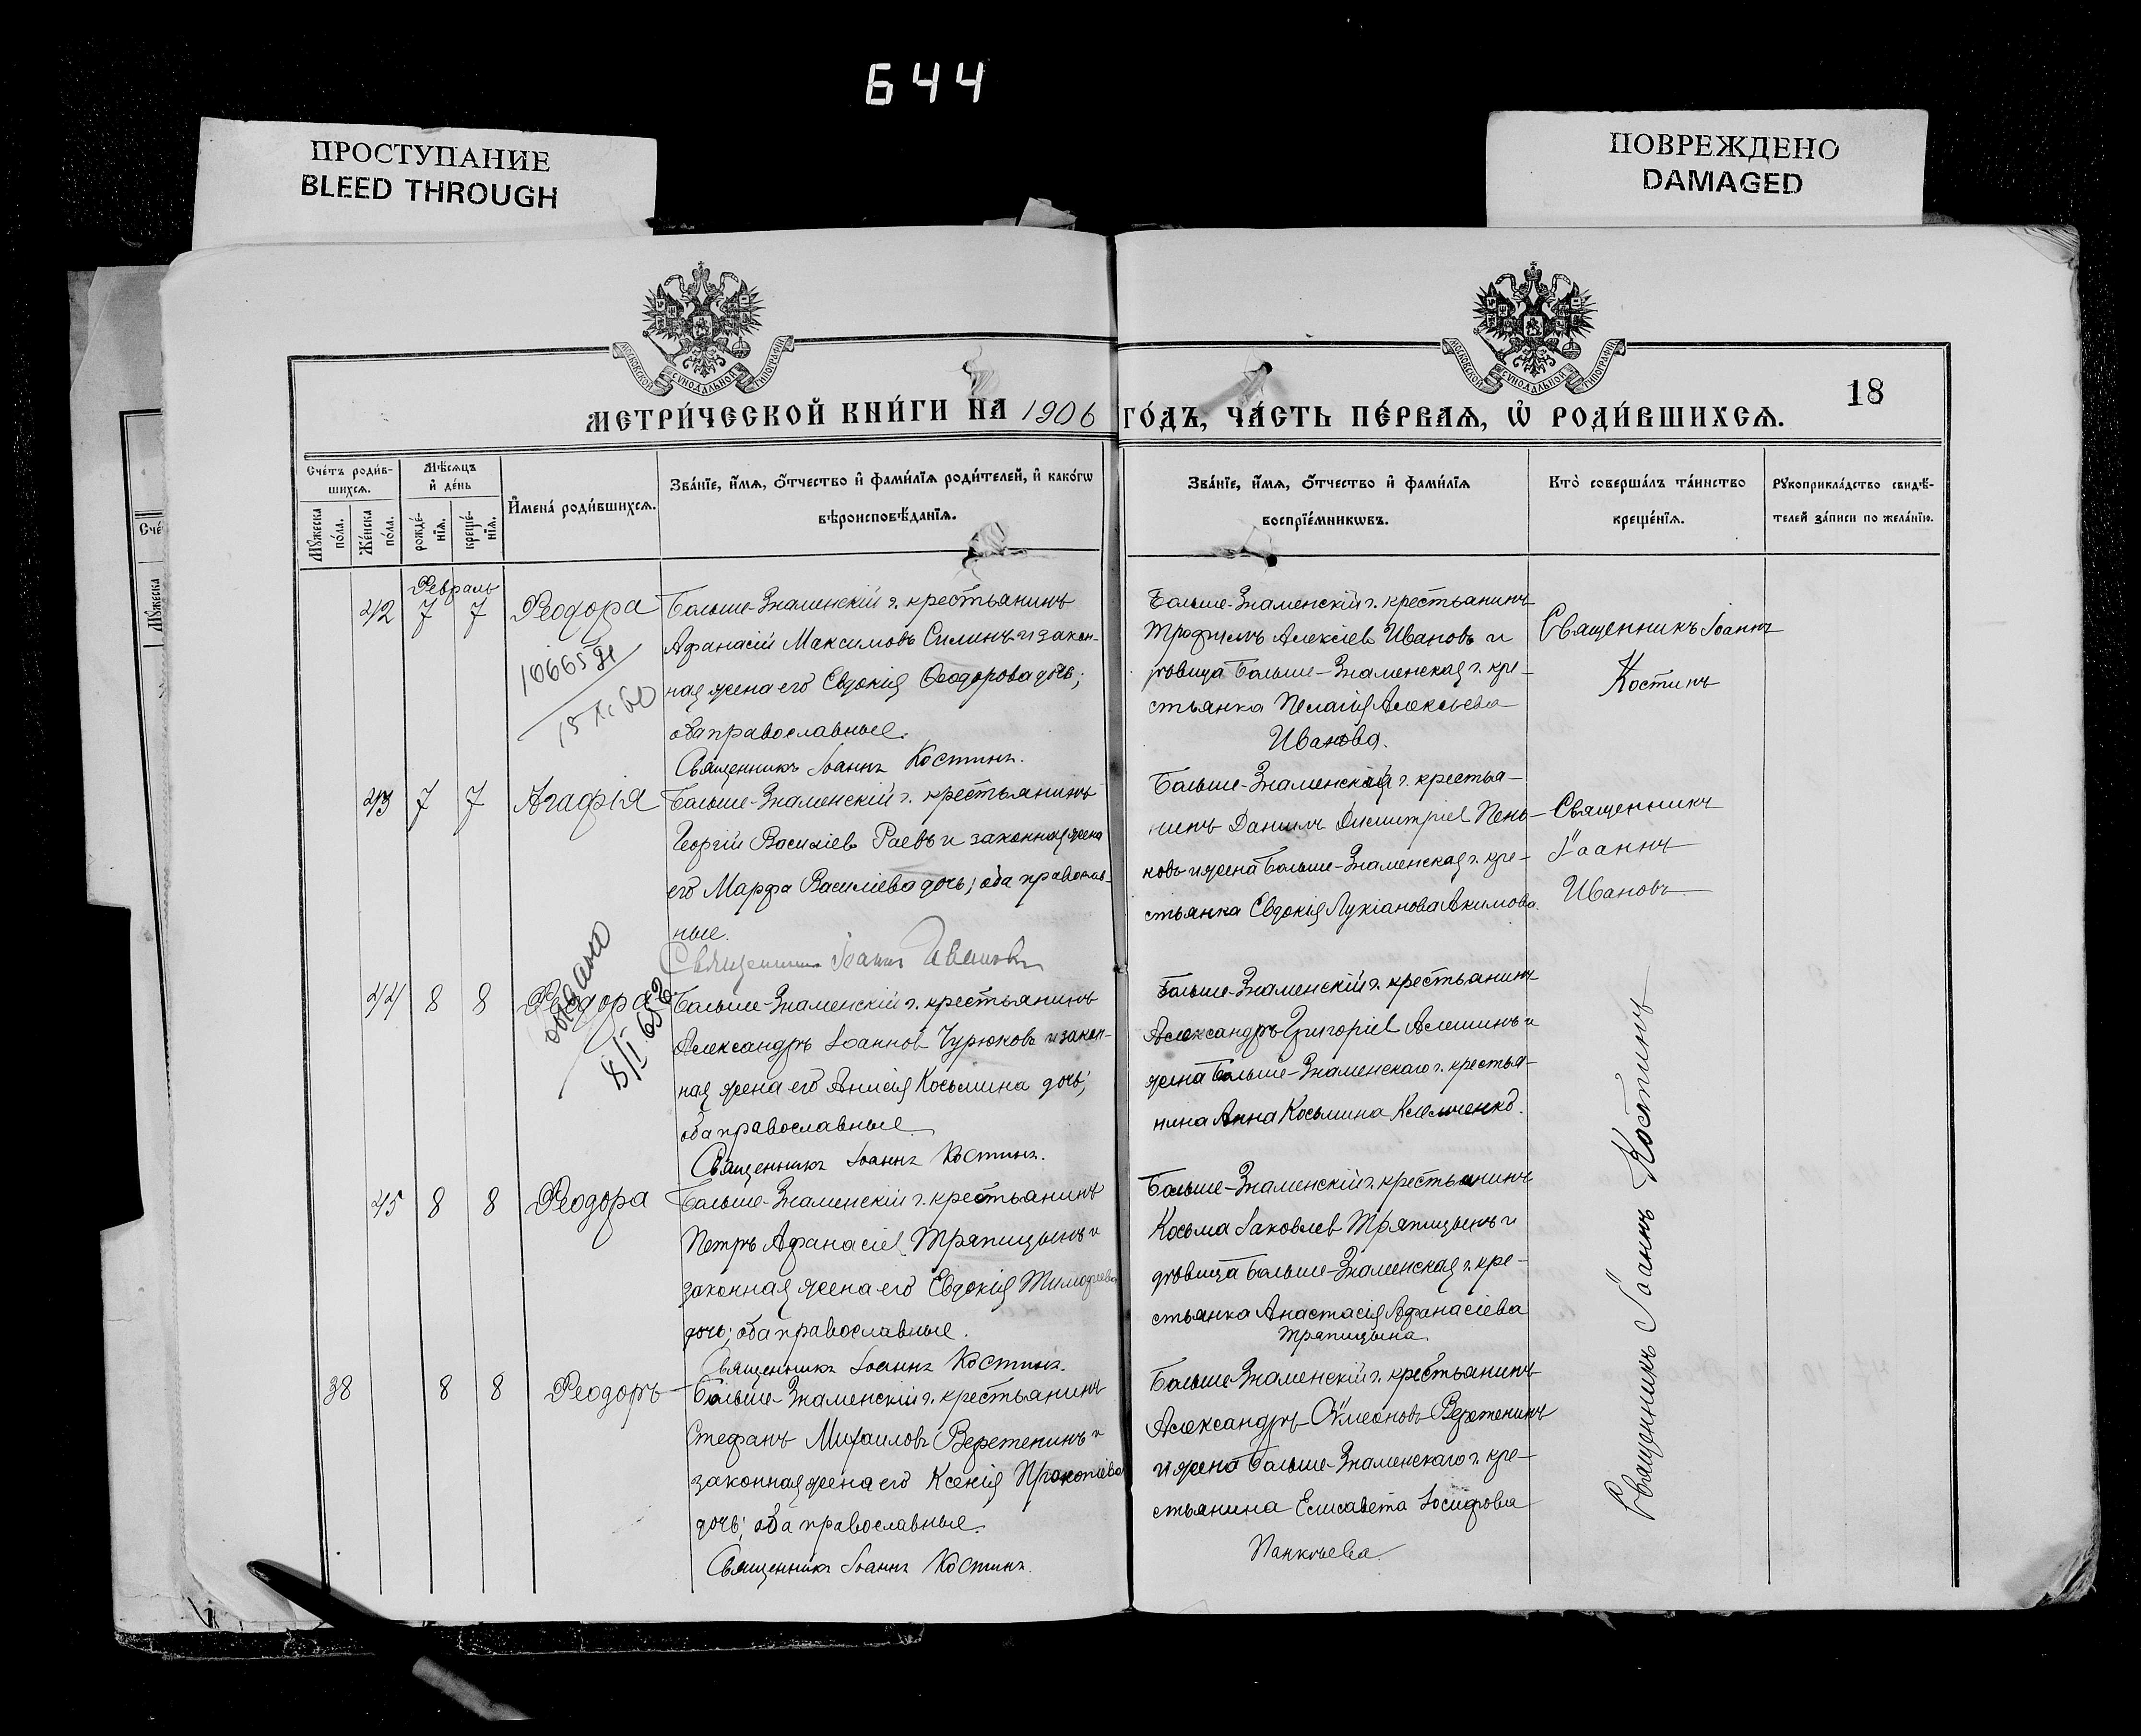 644
ПРОСТУПАНИЕ
BLEED THROUGH
ПОВРЕЖДЕНО
DAMAGED
МОСКОВСКОЙ СУНОДАЛЬНОЙ ТИПОГРАФІИ
МОСКОВСКОЙ СУНОДАЛЬНОЙ ТИПОГРАФІИ
18
МЕТРИ́ЧЕСКОЙ КНИ́ГИ НА 1906 ГО́ДЪ, ЧА́СТЬ ПЕ́РВАѦ, Ѡ҆ РОДИ́ВШИХСѦ.
Сче́тъ роди́в-
шихсѧ.
Мꙋ́жеска по́ла.
Же́нска по́ла.
Мѣ́сѧцъ
и҆ де́нь
рожде́-
нїѧ.
креще́-
нїѧ.
И҆мена̀ роди́вшихсѧ.
Зва́нїе, и҆́мѧ, ѻ҆́тчество и҆ фами́лїѧ роди́телей, и҆ како́гѡ
вѣроисповѣ́данїѧ.
Зва́нїе, и҆́мѧ, ѻ҆́тчество и҆ фами́лїѧ
воспрїе́мникѡвъ.
Кто̀ соверша́лъ та́инство
креще́нїѧ.
Рꙋкоприкла́дство свидѣ́-
телей за́писи по жела́нїю.
Февраль
42 7 7 Ѳеодора
10665
Больше-Знаменскій г. крестьянинъ
Афанасій Максимовъ Силинъ и закон-
ная жена его Евдокія Ѳеодорова дочь;
оба православные.
Священникъ Іоаннъ Костинъ.
Больше-Знаменскій г. крестьянинъ
Трофимъ Алексіев Ивановъ и
дѣвица Больше-Знаменская г. кре-
стьянка Пелагія Алексѣева
Иванова.
Священникъ Іоаннъ
Костинъ
43 7 7 Агафія
Больше-Знаменскій г. крестьянинъ
Георгій Василіев Раевъ и законная жена
его Марфа Василіева дочь; оба православ-
ные.
Священникъ Іоаннъ Ивановъ
Больше-Знаменскій г. крестья-
нинъ Даніилъ Димитріев Пень-
ковъ и жена Больше-Знаменская г. кре-
стьянка Евдокія Лукіанова Акимова.
Священникъ
Іоаннъ
Ивановъ
44 8 8 Ѳеодора
выдано
Больше-Знаменскій г. крестьянинъ
Александръ Іоаннов Чурюковъ и закон-
ная жена его Анисія Косьмина дочь;
оба православные
Священникъ Іоаннъ Костинъ.
Больше-Знаменскій г. крестьянинъ
Александръ Григоріев Алешинъ и
жена Больше-Знаменскаго г. крестья-
нина Анна Косьмина Клемченко.
45 8 8 Ѳеодора
Больше-Знаменскій г. крестьянинъ
Петръ Афанасіев Тряпицынъ и
законная жена его Евдокія Тимофеева
дочь; оба православные.
Священникъ Іоаннъ Костинъ.
Больше-Знаменскій г. крестьянинъ
Косьма Іаковлев Тряпицынъ и
дѣвица Больше-Знаменская г. кре-
стьянка Анастасія Афанасіева
Тряпицына
38 8 8 Ѳеодоръ
Больше-Знаменскій г. крестьянинъ
Стефанъ Михаиловъ Веретенинъ и
законная жена его Ксенія Прокопіева
дочь; оба православные.
Священникъ Іоаннъ Костинъ.
Больше-Знаменскій г. крестьянинъ
Александръ Сѵмеоновъ Веретенинъ
и жена Больше-Знаменскаго г. кре-
стьянина Елисавета Іосифова
Панкѣева.
Священникъ Іоаннъ Костинъ